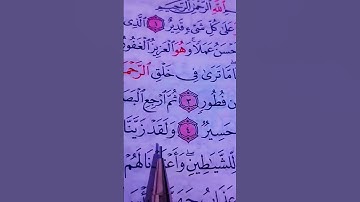 اللَّهِ الرَّحْمَٰنِ الرَّحِيمِ
عَلَىٰ كُلِّ شَىْءٍ قَدِيرٌ ١ الَّذِى
حْسَنُ عَمَلًا وَهُوَ الْعَزِيزُ الْغَفُو
مَّا تَرَىٰ فِى خَلْقِ الرَّحْمَ
ن فُطُورٍ ٣ ثُمَّ ارْجِعِ الْبَصَ
حَسِيرٌ ٤ وَلَقَدْ زَيَّنَّا
لِّلشَّيَاطِينِ وَأَعْتَدْنَا لَهُمْ
عَذَابُ جَهَنَّ